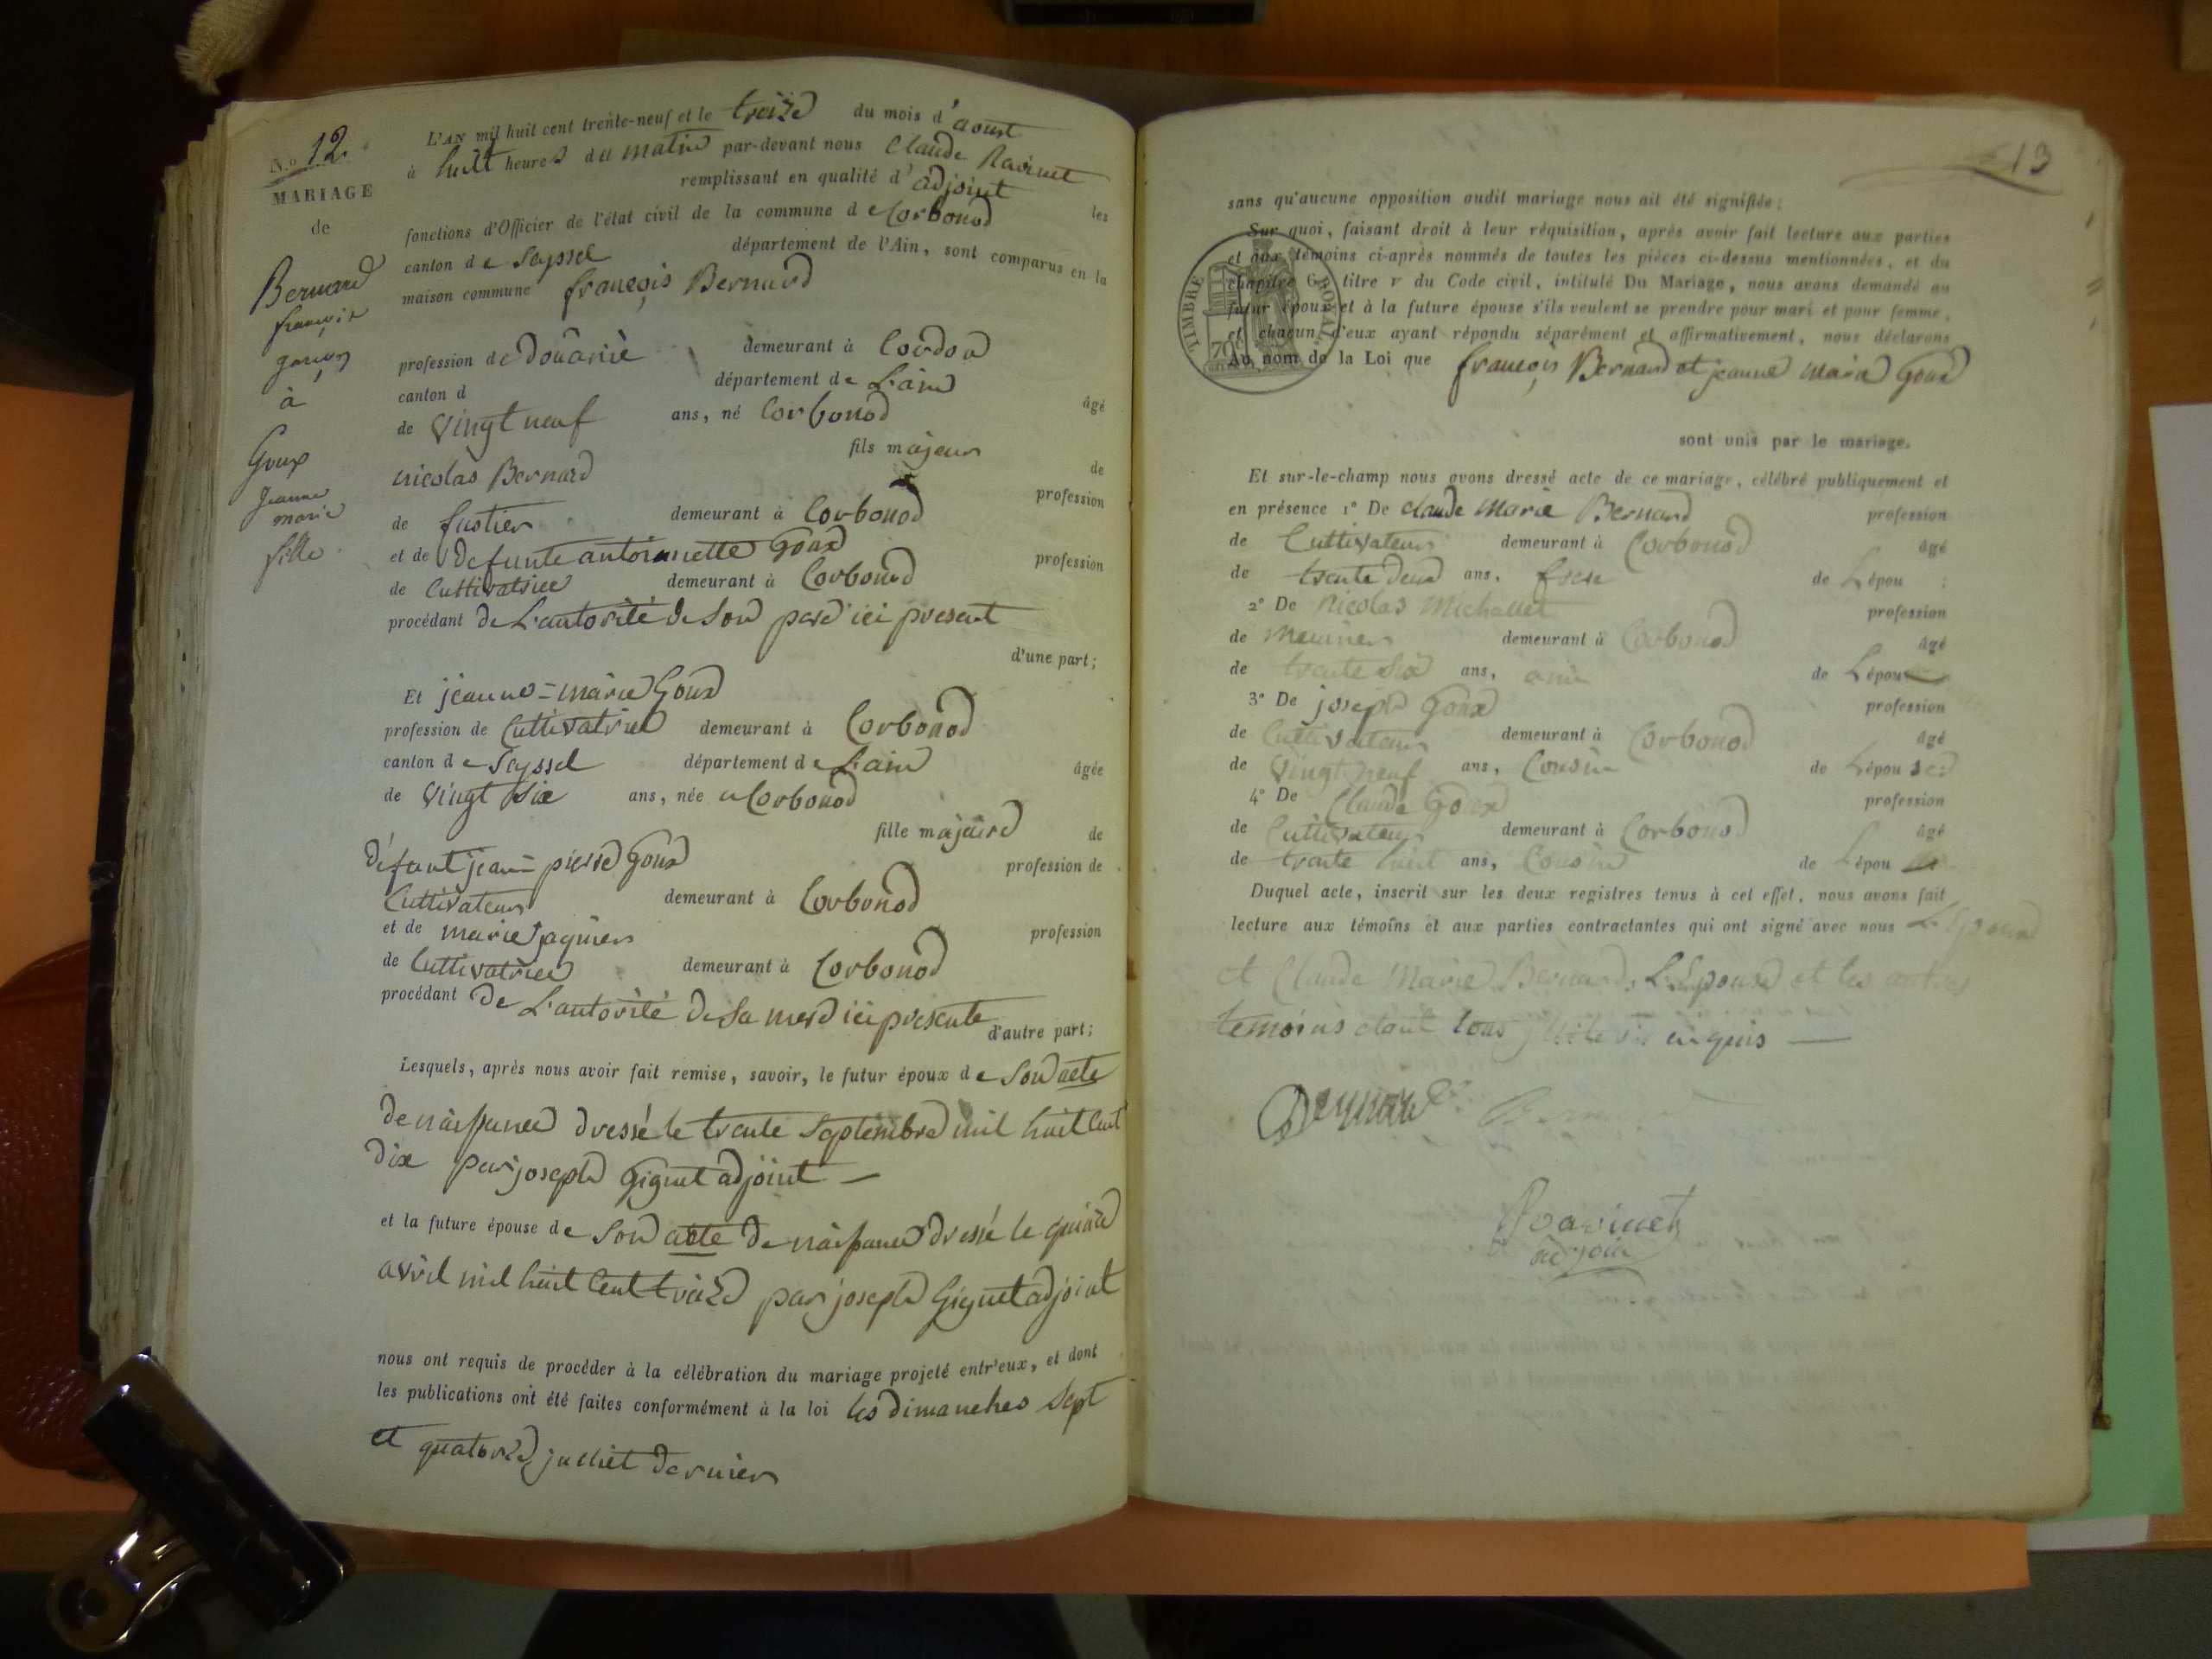 N.o 12.
MARIAGE
de
Bernard
françois
garçon
à
Goux
Jeanne
marie
fille.
L'AN mil huit cent trente-neuf et le treize du mois d'aoust
à huit heures du matin par-devant nous Claude Ravinet
remplissant en qualité d'adjoint les
fonctions d'Officier de l'état civil de la commune de Corbonod
canton de Seyssel département de l'Ain, sont comparus en la
maison commune françois Bernard
profession de douanié demeurant à Cordon
canton d département de L'ain âgé
de vingt neuf ans, né Corbonod
fils majeur de
nicolas Bernard profession
de fustier demeurant à Corbonod
et de defunte antoinette Goux profession
de Cultivatrice demeurant à Corbonod
procédant de L'autorité de son pere ici present
d'une part;
Et jeanne=marie Goux
profession de Cultivatrice demeurant à Corbonod
canton de Seyssel département de L'ain âgée
de vingt six ans, née a Corbonod
fille majeure de
défunt jean=pierre Goux profession de
Cultivateur demeurant à Corbonod
et de marie profession
de Cultivatrice demeurant à Corbonod
procédant de L'autorité de sa mere ici presente
d'autre part;
Lesquels, après nous avoir fait remise, savoir, le futur époux de son acte
de naissance dressé le trente septembre mil huit cent
dix par joseph Gignet adjoint —
et la future épouse de son acte de naissance dressé le quinze
avril mil huit cent treize par joseph Gignet adjoint
nous ont requis de procéder à la célébration du mariage projeté entr'eux, et dont
les publications ont été faites conformément à la loi les dimanches sept
et quatorze juillet dernier
13
sans qu'aucune opposition audit mariage nous ait été signifiée;
Sur quoi, faisant droit à leur réquisition, après avoir fait lecture aux parties
et aux témoins ci-après nommés de toutes les pièces ci-dessus mentionnées, et du
chapitre 6, titre v du Code civil, intitulé Du Mariage, nous avons demandé au
futur époux et à la future épouse s'ils veulent se prendre pour mari et pour femme,
et chacun d'eux ayant répondu séparément et affirmativement, nous déclarons
Au nom de la Loi que françois Bernard et jeanne marie Goux
TIMBRE ROYAL
70c
sont unis par le mariage.
Et sur-le-champ nous avons dressé acte de ce mariage, célébré publiquement et
en présence 1° De claude Marie Bernard profession
de Cultivateur demeurant à Corbonod âgé
de trente deux ans, frere de L'épou
2° De Nicolas Michallet profession
de Meunier demeurant à Corbonod âgé
de trente six ans, ami de L'épou
3° De joseph Goux profession
de Cultivateur demeurant à Corbonod âgé
de vingt neuf ans, Cousin de L'épouse
4° De Claude Goux profession
de Cultivateur demeurant à Corbonod âgé
de trente huit ans, Cousin de L'épou
Duquel acte, inscrit sur les deux registres tenus à cet effet, nous avons fait
lecture aux témoins et aux parties contractantes qui ont signé avec nous L'Epoux
et Claude Marie Bernard, L'Epouse et les autres
temoins etant tous enquis —
Bernard Bernard
Ravinet
adjoin